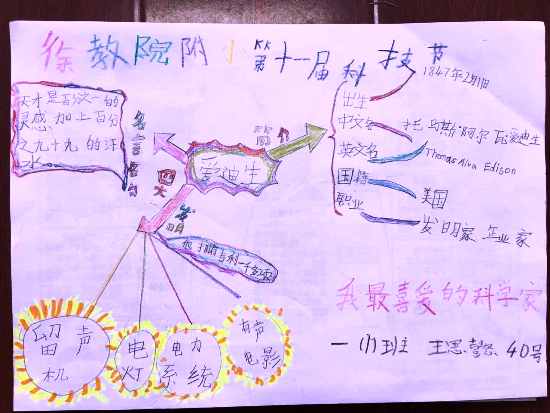 徐教院附小第十一届科技节
天才是百分之一的
灵感加上百分
之九十九的汗
水
名言名句
爱迪生
简介
出生
1847年2月11日
中文名
托马斯·阿尔瓦爱迪生
英文名
Thomas Alva Edison
国籍
美国
职业
发明家 企业家
四大
发明
留声
机
电
灯
电力
系统
有声
电影
我最喜爱的科学家
一(1)班
40号